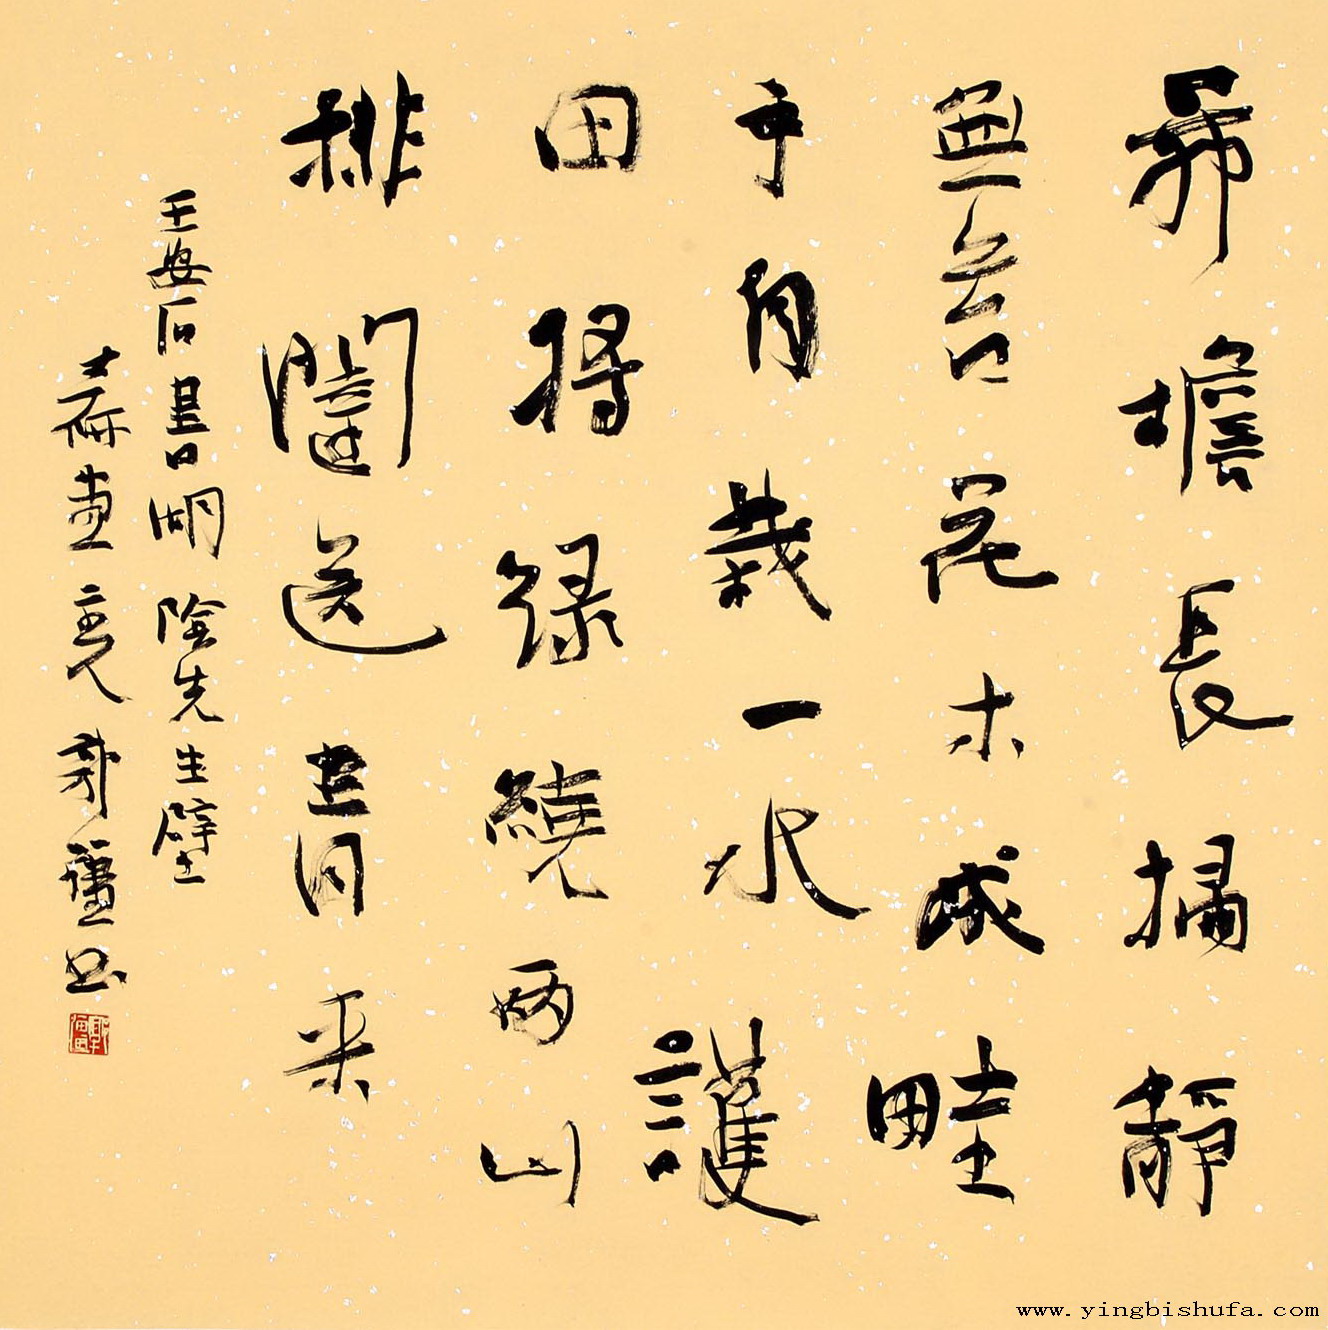 茅檐長掃靜
無苔花木成畦
手自栽一水護
田将绿繞兩山
排闥送青来
王安石書湖陰先生壁
主人
www.yingbishufa.com